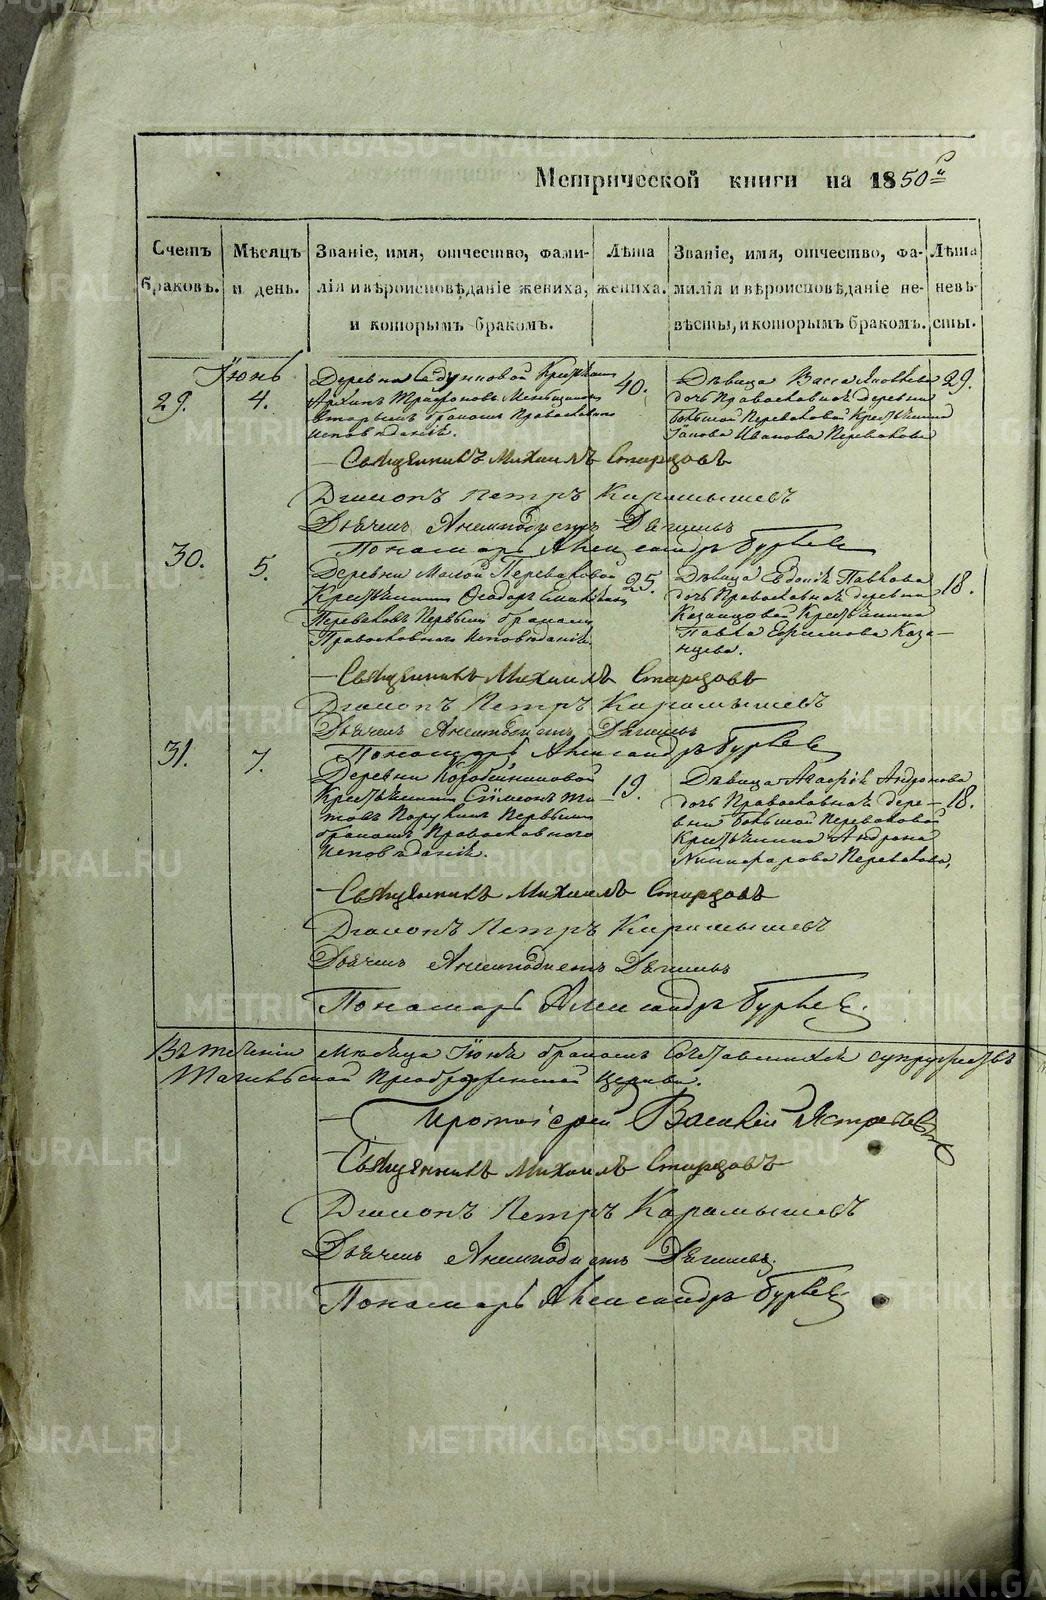 Метрической книги на 1850й
Счетъ браковъ.
Мѣсяцъ и день.
Званіе, имя, отчество, фами-
лія и вѣроисповѣданіе жениха,
и которымъ бракомъ.
Лѣта
жениха.
Званіе, имя, отчество, фа-
милія и вѣроисповѣданіе не-
вѣсты, и которымъ бракомъ.
Лѣта
невѣ-
сты.
Іюнь
29.
4.
Деревни
Архипъ Трифоновъ
вторымъ бракомъ Православнаго
исповѣданія.
40.
Дѣвица Васса Яковлева
дочь Православная деревни
Большой Переваловой Крестьянина
Іакова Иванова Перевалова
29.
Священникъ Михаилъ Старцовъ
Діаконъ Петръ Карамышевъ
Дьячекъ Анемподистъ Дягилевъ
Пономарь Александръ
30.
5.
Деревни Малой Переваловой
Крестьянинъ Ѳеодоръ
Переваловъ Первымъ бракомъ
Православнаго исповѣданія.
25.
Дѣвица Евдокія Павлова
дочь Православная деревни
Казанцовой Крестьянина
Павла Ефимова Каза-
нцева.
18.
Священникъ Михаилъ Старцовъ
Діаконъ Петръ Карамышевъ
Дьячекъ Анемподистъ Дягилевъ
Пономарь Александръ
31.
7.
Деревни Коробейниковой
Крестьянинъ Сімеонъ Ти-
товъ Первымъ
бракомъ Православнаго
исповѣданія.
19.
Дѣвица Агафія Андронова
дочь Православная дере-
вни Большой Переваловой
Крестьянина Андрона
Никифорова Перевалова,
18.
Священникъ Михаилъ Старцовъ
Діаконъ Петръ Карамышевъ
Дьячекъ Анемподистъ Дягилевъ
Пономарь Александръ
Въ теченіи мѣсяца Іюня бракомъ сочетавшихся супружествъ
Преображенской Церкви.
Протоіерей Василій
Священникъ Михаилъ Старцовъ
Діаконъ Петръ Карамышевъ
Дьячекъ Анемподистъ Дягилевъ
Пономарь Александръ
METRIKI.GASO-URAL.RU